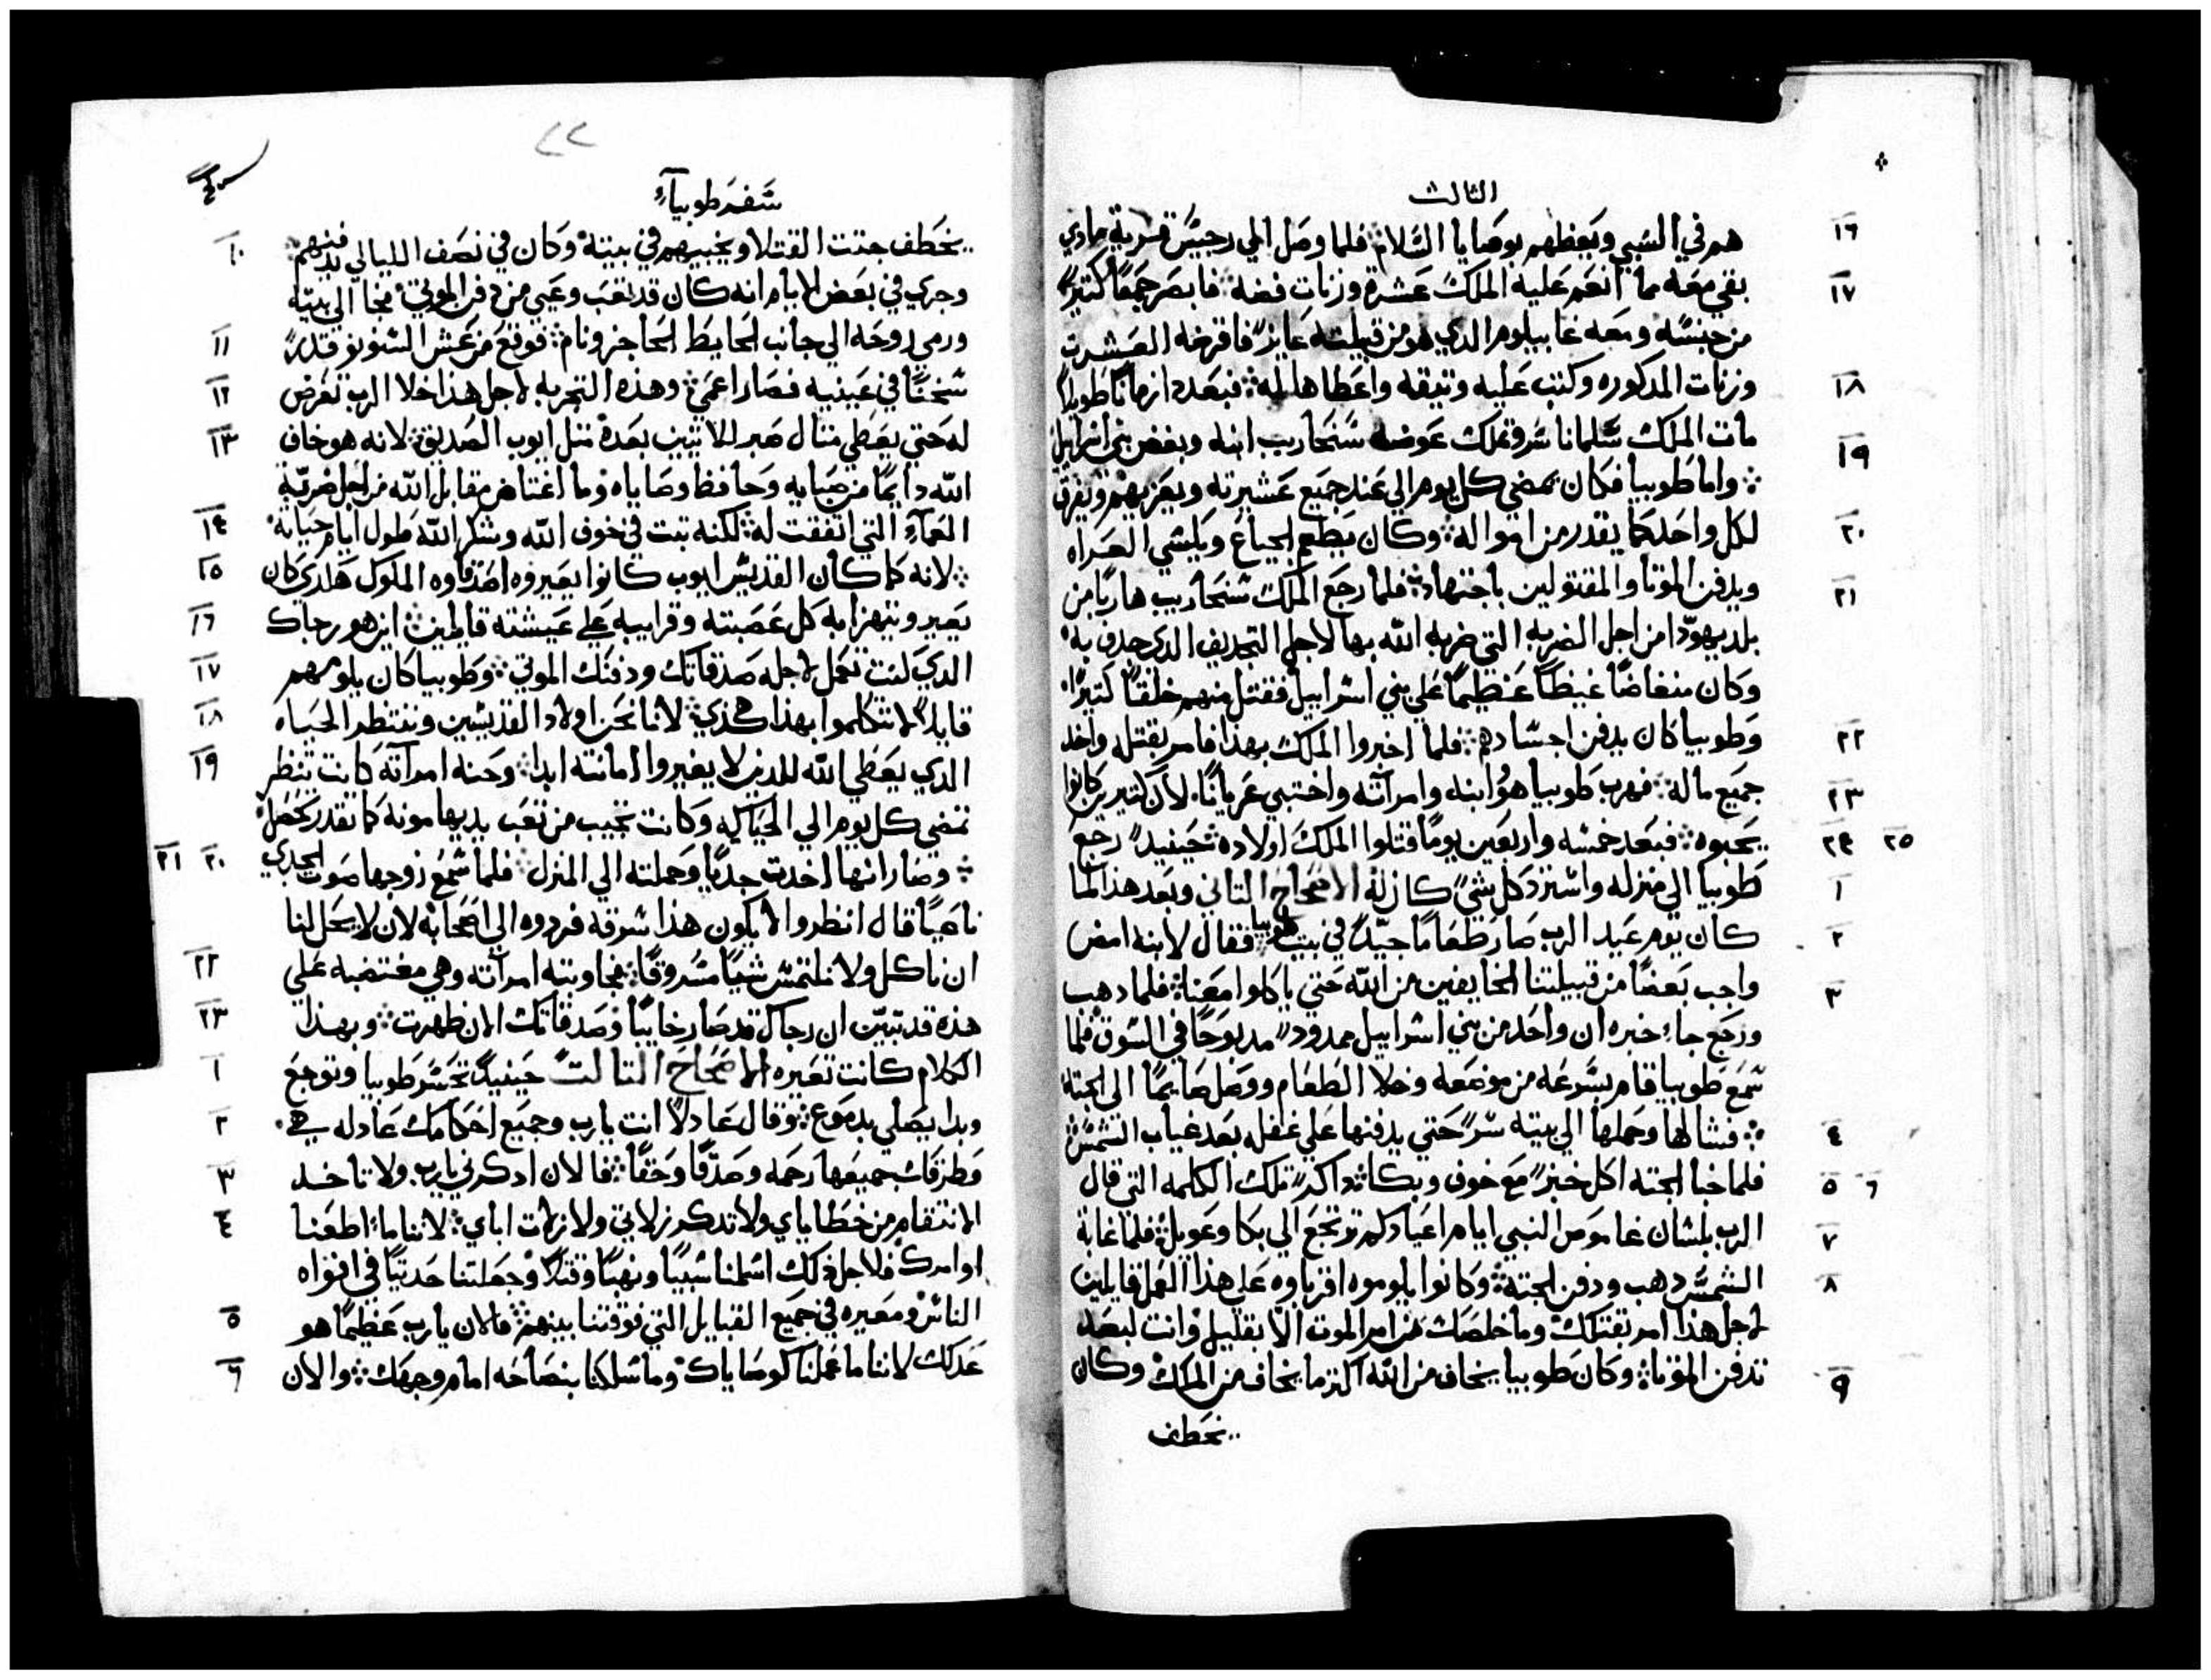 الثالث
هم في السبي ويعظهم بوصايا السلام فلما وصل الي رجيس قرية مادي
١٦
بقي معه مما انعم عليه الملك عشرة وزنات فضه فابصر جمعًا كتيرًا
١٧
من جنسه ومعه غابيلوم الدي هو من قبيلته عايزًا فاقرضه العشرت
وزنات المدكوره وكتب عليه وتيقه واعطاها له فبعد ازمانًا طويلًا
١٨
مات الملك سلمانا سر وتملك عوضه سنحاريب ابنه وبغض بني اسرايل
١٩
واما طوبيا فكان يمضي كل يوم الي عند جميع عشيرته ويعزيهم ويفرق
لكل واحد كما يقدر من امواله وكان يطعم الجياع ويلبسي العراه
٢٠
ويدفن الموتا والمقتولين باجتهاد فلما رجع الملك سنحاريب هاربًا من
٢١
بلد يهودا من اجل الضربه التي ضربه الله بها لاجل التجديف الدي جدف به
وكان متغاضًا غيظًا عظيمًا علي بني اسراييل فقتل منهم خلقًا كتيرًا
وطوبيا كان يدفن اجسادهم فلما اخبروا الملك بهدا فامر بقتله واخد
٢٢
جميع ماله فهرب طوبيا هو وابنه وامراته واختبي عريانًا لان كتيرين كانوا
٢٣
يحبوه فبعد خمسه واربعين يومًا قتلوا الملك اولاده حينيدٍ رجع
٢٤ ٢٥
طوبيا الي منزله واسترد كل شي كان له الاصحاح التاني وبعد هذا لما
١
كان يوم عيد الرب صار طعامًا جيدًا في بيت طوبيا فقال لابنه امض
٢
واجب بعضًا من قبيلتنا الخايفين من الله حتي ياكلوا معنا فلما دهب
٣
ورجع جاء خبره ان واحد من بني اسراييل ممدود مدبوحًا في السوق فلما
سمع طوبيا قام بسرعه من موضعه وخلا الطعام ووصل صايمًا الي الجته
فشالها وحملها الي بيته سرًا حتي يدفنها علي غفله بعد غياب الشمس
٤
فلما خبا الجته اكل خبزًا مع خوف وبكا تداكرًا تلك الكلمه التي قال
٥ ٦
الرب بلسان عاموص النبي ايام اعيادكم ترتجع الي بكا وعويل فلما غابة
٧
الشمس دهب ودفن الجته وكانوا يلوموه اقرباوه علي هذا العمل قايلين
٨
لاجل هدا امر بقتلك وما خلصت من امر الموت الا بقليل وانت لبعد
تدفن الموتا وكان طوبيا يخاف من الله اكتر ما يخاف من الملك وكان
٩
يخطف
٢٢
سفر طوبياء
يخطف جتت القتلا ويخبيهم في بيته وكان في نصف الليالي يدفنهم
١٠
وجري في بعض الايام انه كان قد تعب وعيي من دفن الموتي فجا الي بيته
ورمي روحه الي جانب الحايط الحاجز ونام فوقع من عش السنونو قدرًا
١١
سخنًا في عينيه فصار اعمي وهذه التجربه لاجل هذا خلا الرب تعرض
١٢
له حتي يعطي متال صبر للاتيين بعده متل ايوب الصديق لانه هو خاف
١٣
الله دايمًا من صبايه وحافظ وصاياه وما اغتاض مقابل الله من اجل ضربة
العماء التي اتفقت له لكنه تبت في خوف الله وشكر الله طول ايام حياته
١٤
لانه كما كان القديس ايوب كانوا يعيروه اصدقاوه الملوك هكدي كان
١٥
يعيرو يتهزا به كل عصبته وقرايبه علي عيشته قايلين اين هو رجاك
١٦
الدي لئت تعمل لاجله صدقاتك ودفنك الموتي وطوبيا كان يلومهم
١٧
قايلًا لا تتكلموا بهذا هكذي لاننا نحن اولاد القديسين وننتظر الحياه
١٨
الدي يعطي الله للدين لا يغيروا امانته ابدا وحنه امراته كانت تنظر
١٩
تمضي كل يوم الي الحياكه وكانت تجيب من تعب يديها مونه كما تقدر تحصل
وصار انها اخدت جديًا وحملته الي المنزل فلما سمع زوجها صوت الجدي
٢٠ ٢١
ناعيًا قال انظروا لا يكون هذا سرقه فردوه الي اصحابه لان لا يحل لنا
ان ناكل ولا نلتمس شيًا مسروقًا فجاوبته امراته وهي مغتضبه علي
٢٢
هذه قد تبين ان رجاك قد صار خايبًا وصدقاتك الان ظهرت وبهدا
٢٣
الكلام كانت تعيره الاصحاح التالت حينيدٍ تحسر طوبيا وتوجع
١
وبدا يصلي بدموع وقال عادلًا انت يارب وجميع احكامك عادله هي
٢
وطرقات جميعها رحمه وصدقًا وحقًا فالان ادكرني يارب ولا تاخد
٣
الانتقام من خطاياي ولا تدكر زلاتي ولا زلات اباي لاننا ما اطعنا
٤
اوامرك فلاجل ذلك اسلمنا سبيًا ونهبًا وقتلًا وجعلتنا حديتًا في افواه
الناس ومعيره في جميع القبايل التي فرقتنا بينهم فالان يارب عظيمًا هو
٥
عدلك لاننا ما عملنا كوصاياك وما سلكنا بنصاحه امام وجهك والان
٦